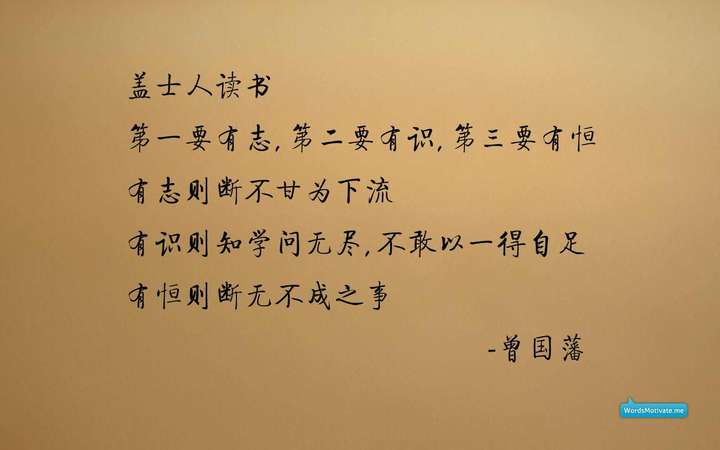 盖士人读书
第一要有志,第二要有识,第三要有恒
有志则断不甘为下流
有识则知学问无尽,不敢以一得自足
有恒则断无不成之事
-曾国藩
WordsMotivate.me